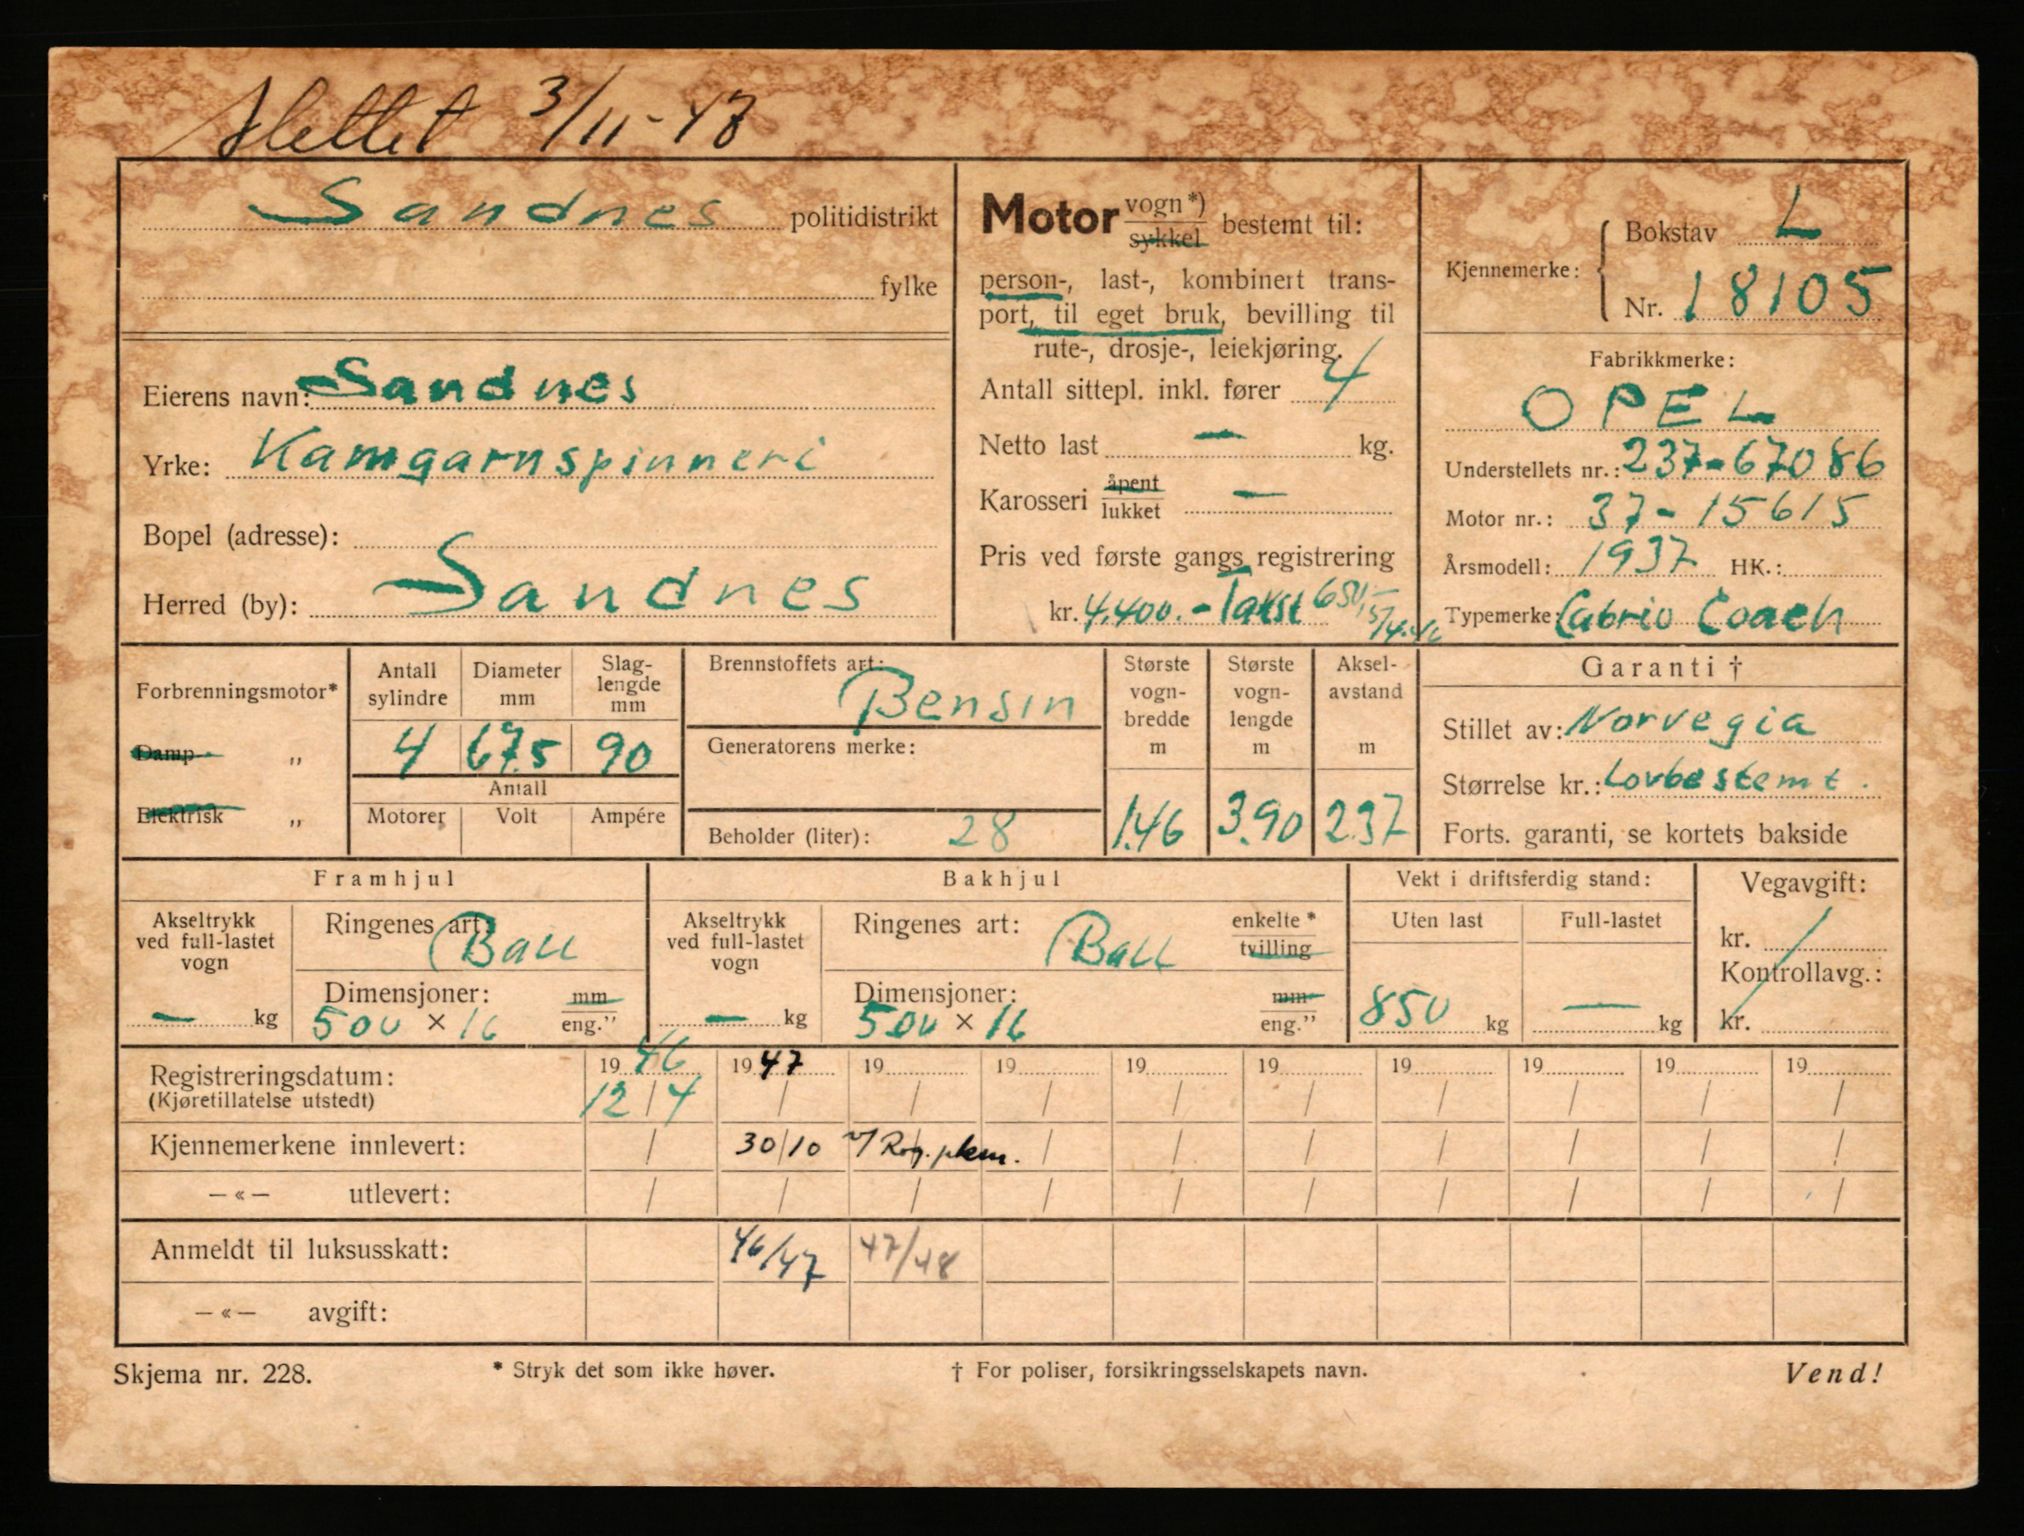 Slettet 3/11-47
Sandnes politidistrikt
fylke
Eierens navn: Sandnes
Yrke: Kamgarnspinneri
Bopel (adresse):
Herred (by): Sandnes
Motor vogn*) sykkel bestemt til:
person-, last-, kombinert trans-
port, til eget bruk, bevilling til
rute-, drosje-, leiekjøring.
Antall sittepl. inkl. fører 4
Netto last — kg.
Karosseri åpent lukket —
Pris ved første gangs registrering
kr. 4.400.- Takst 650,-
Kjennemerke: Bokstav L
Nr. 18105
Fabrikkmerke:
OPEL
Understellets nr.: 237-67086
Motor nr.: 37-15615
Årsmodell: 1937 HK.:
Typemerke Cabrio Coach
Forbrenningsmotor*
Damp „
Elektrisk „
Antall sylindre
4
Diameter mm
67.5
Slag-lengde mm
90
Antall
Motorer Volt Ampére
Brennstoffets art: Bensin
Generatorens merke:
Beholder (liter): 28
Største vogn-bredde m
1.46
Største vogn-lengde m
3.90
Aksel-avstand m
2.37
Garanti †
Stillet av: Norvegia
Størrelse kr.: Lovbestemt.
Forts. garanti, se kortets bakside
Framhjul
Akseltrykk ved full-lastet vogn
— kg
Ringenes art: Ball
Dimensjoner: mm
500 × 16 eng.”
Bakhjul
Akseltrykk ved full-lastet vogn
— kg
Ringenes art: Ball enkelte * tvilling
Dimensjoner: mm
500 × 16 eng.”
Vekt i driftsferdig stand:
Uten last Full-lastet
850 kg — kg
Vegavgift:
kr. /
Kontrollavg.:
kr. /
Registreringsdatum: 1946 1947 19 19 19 19 19 19 19 19
(Kjøretillatelse utstedt) 12/4 / / / / / / / / /
Kjennemerkene innlevert: / 30/10 / / / / / / /
—«— utlevert: / / / / / / / / / /
Anmeldt til luksusskatt: 46/47 47/48
—«— avgift:
Skjema nr. 228. * Stryk det som ikke høver. † For poliser, forsikringsselskapets navn. Vend!